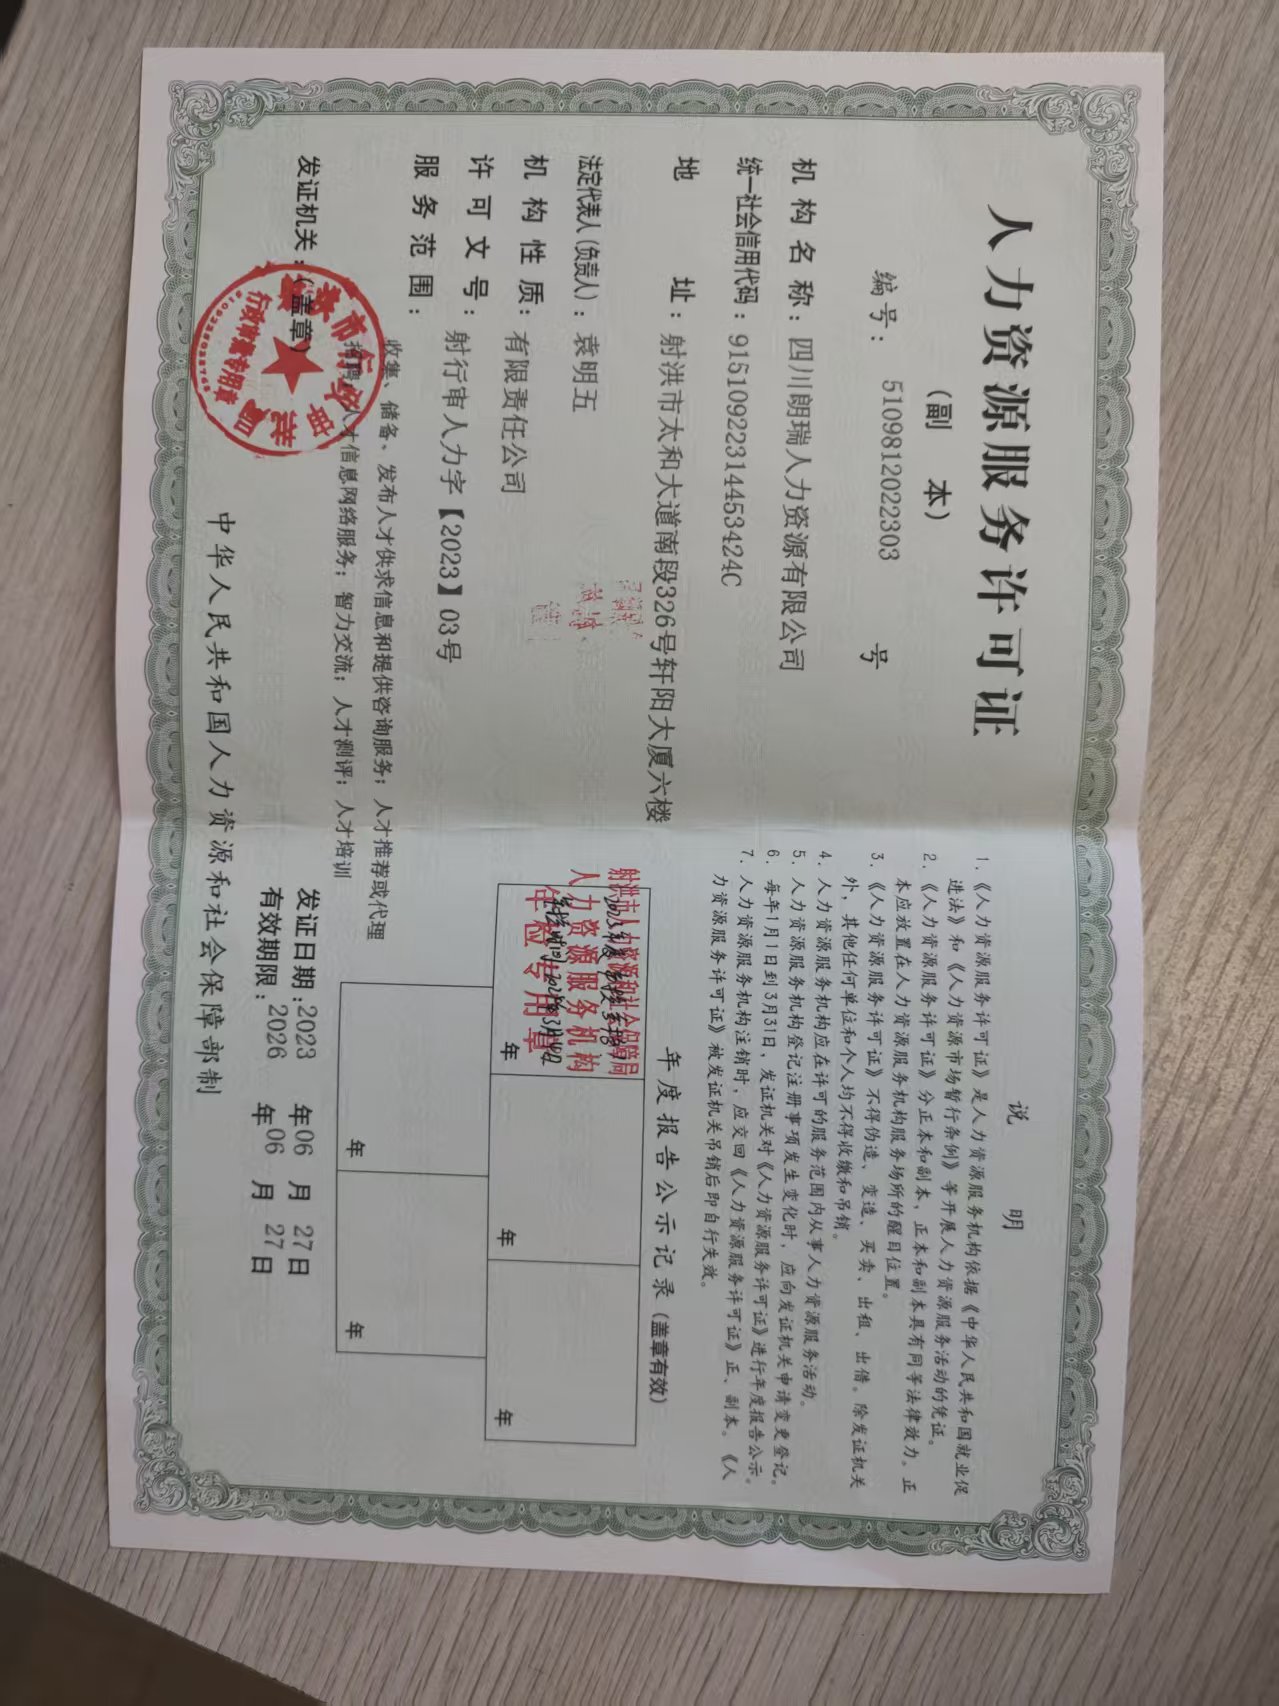 人力资源服务许可证
(副 本)
编号： 5109812022303 号
机构名称：四川朗瑞人力资源有限公司
统一社会信用代码：91510922314453424C
地 址：射洪市太和大道南段326号轩阳大厦六楼
法定代表人(负责人)：袁明五
机构性质：有限责任公司
许可文号：射行审人力字【2023】03号
服务范围：
收集、储备、发布人才供求信息和提供咨询服务；人才推荐或代理
招聘；人才信息网络服务；智力交流；人才测评；人才培训
发证机关：(盖章)
射洪市行政审批局
行政审批专用章
发证日期：2023 年06 月 27日
有效期限：2026 年06 月 27日
中华人民共和国人力资源和社会保障部制
说 明
1.《人力资源服务许可证》是人力资源服务机构依据《中华人民共和国就业促
进法》和《人力资源市场暂行条例》等开展人力资源服务活动的凭证。
2.《人力资源服务许可证》分正本和副本，正本和副本具有同等法律效力。正
本应放置在人力资源服务机构服务场所的醒目位置。
3.《人力资源服务许可证》不得伪造、变造、买卖、出租、出借。除发证机关
外，其他任何单位和个人均不得收缴和吊销。
4.人力资源服务机构应在许可的服务范围内从事人力资源服务活动。
5.人力资源服务机构登记注册事项发生变化时，应向发证机关申请变更登记。
6.每年1月1日到3月31日，发证机关对《人力资源服务许可证》进行年度报告公示。
7.人力资源服务机构注销时，应交回《人力资源服务许可证》正、副本。《人
力资源服务许可证》被发证机关吊销后即自行失效。
年度报告公示记录(盖章有效)
射洪市人力资源和社会保障局
人力资源服务机构
年检专用章
年
年
年
年
年